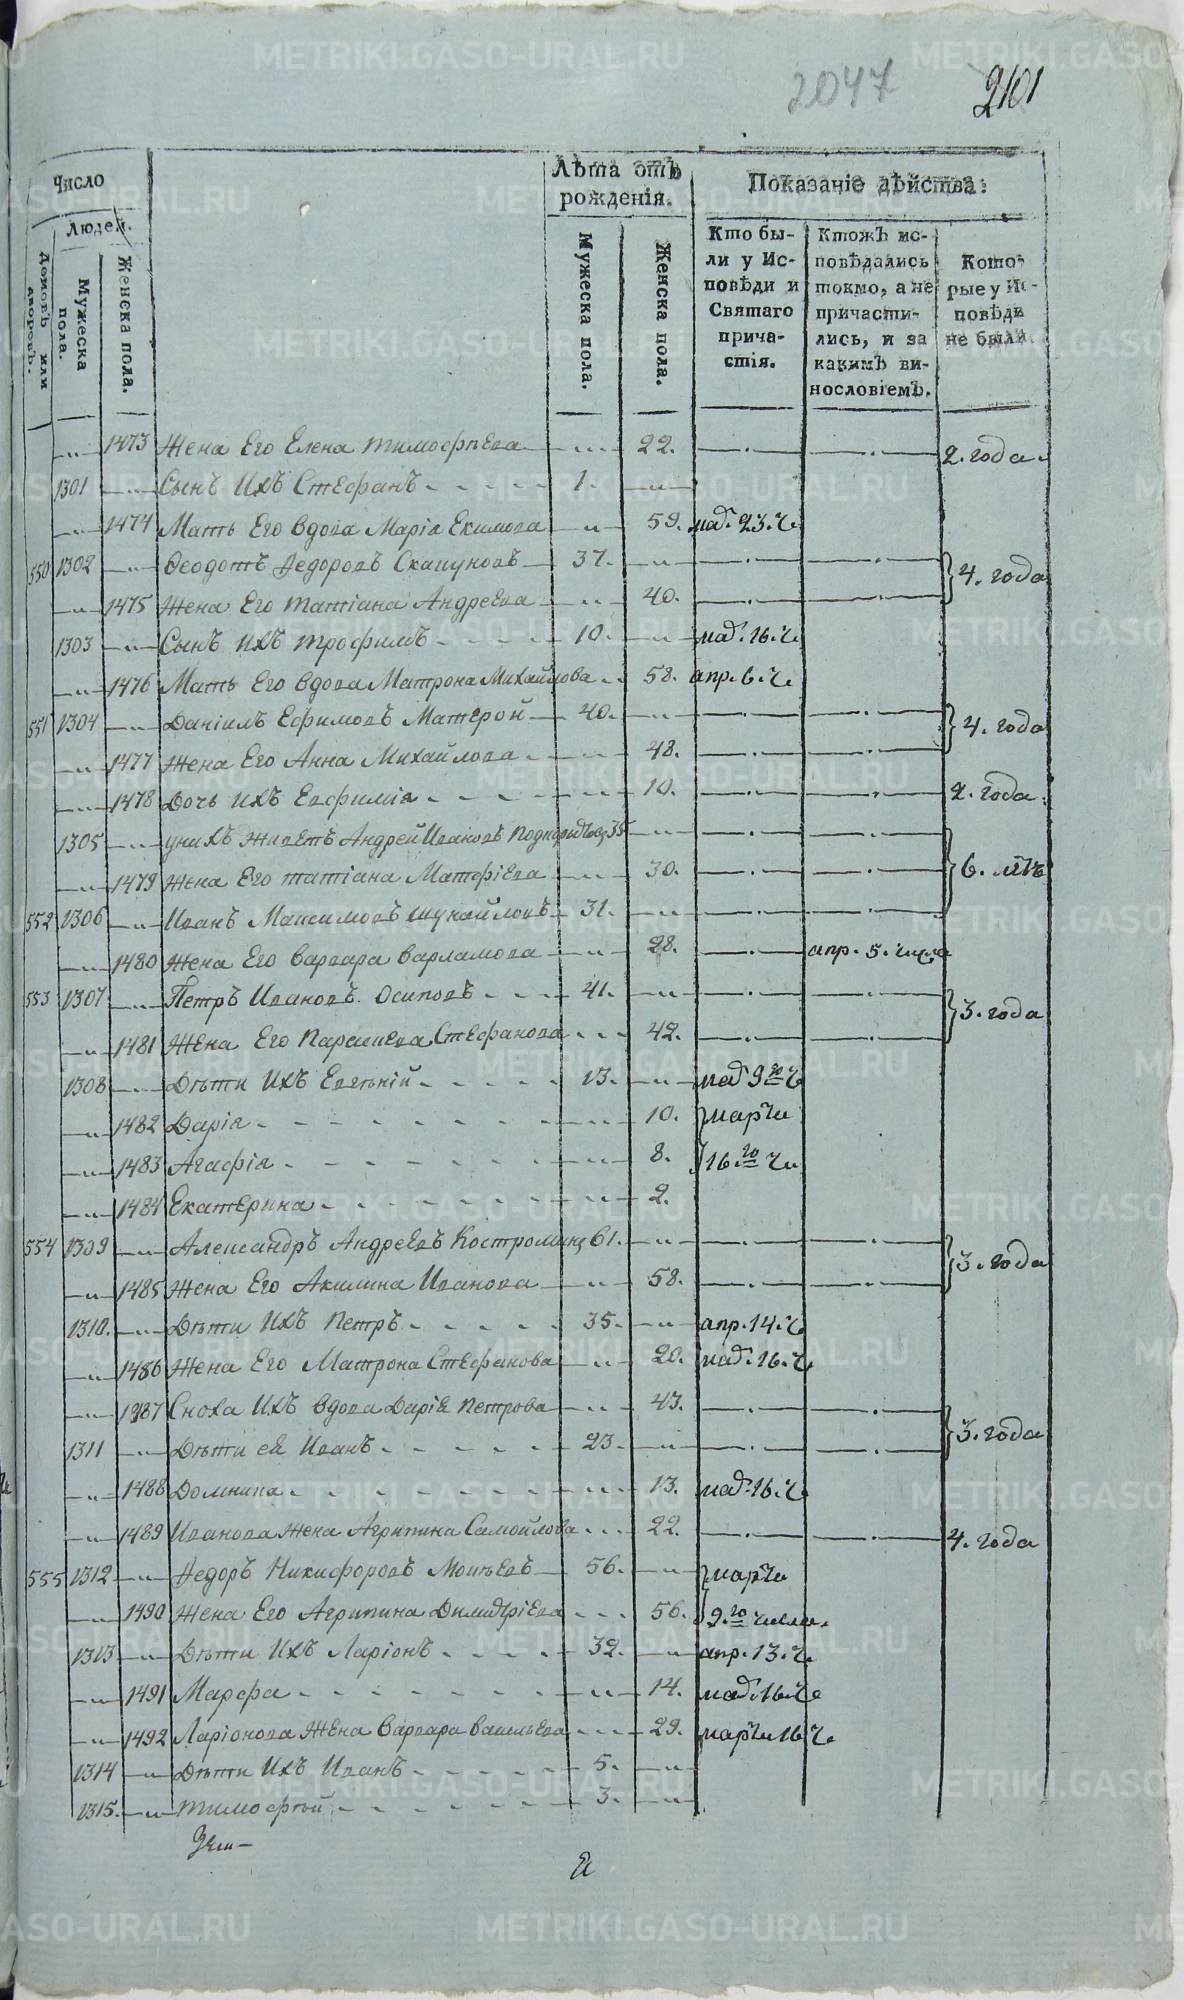 2047
2101
Число
Людей.
Домовъ или дворовъ.
Мужеска пола.
Женска пола.
Лѣта отъ рожденія.
Мужеска пола.
Женска пола.
Показаніе дѣйства:
Кто бы-
ли у Ис-
повѣди и
Святаго
прича-
стія.
Ктожъ ис-
повѣдались
токмо, а не
причасти-
лись, и за
какимъ ви-
нословіемъ.
Кото-
рые у Ис-
повѣди
не были.
1473 Жена Его Елена Тимофѣева 22. 2. года.
1301 Сынъ Ихъ Стефанъ 1.
1474 Мать Его вдова Марія Екимова 59. мар. 23. ч.
550 1302 Ѳеодотъ Федоровъ Скапуновъ 37. 4. года
1475 Жена Его Татіана Андреева 40.
1303 Сынъ Ихъ Трофимъ 10. мар. 16. ч.
1476 Мать Его вдова Матрона Михайлова 58. апр. 6. ч.
551 1304 Даніилъ Ефимовъ Матерой 40. 4. года
1477 Жена Его Анна Михайлова 48.
1478 Дочь Ихъ Евфимія 10. 2. года.
1305 у нихъ Живетъ Андрей Ивановъ 35 6. лѣтъ
1479 Жена Его Татіана Матфіева 30.
552 1306 Иванъ Максимовъ 31.
1480 Жена Его Варвара Варламова 28. апр. 5. числа
553 1307 Петръ Ивановъ Осиповъ 41. 3. года
1481 Жена Его Параскева Стефанова 42.
1308 Дѣти Ихъ Евгеній 13. мар 9го ч
1482 Дарія 10. марта
1483 Агафія 8. 16.го ч.
1484 Екатерина 2.
554 1309 Александръ Андреевъ Костроминъ 61. 3. года
1485 Жена Его Акилина Иванова 58.
1310. Дѣти Ихъ Петръ 35. апр. 14. ч
1486 Жена Его Матрона Стефанова 20. мар. 16. ч.
1487 Сноха Ихъ вдова Дарія Петрова 43. 3. года
1311 Дѣти ея Иванъ 23.
1488 Домника 13. мар. 16. ч
1489 Иванова Жена Агрипина Самойлова 22. 4. года
555 1312 Федоръ Никифоровъ Мокѣевъ 56. марта
1490 Жена Его Агрипина Димитріева 56. 9.го числа.
1313 Дѣти Ихъ Ларіонъ 32. апр. 13. ч.
1491 Марфа 14. мар. 16. ч
1492 Ларіонова Жена Варвара Васильева 29. марта 16 ч
1314 Дѣти Ихъ Иванъ 5.
1315. Тимофѣй 3.
METRIKI.GASO-URAL.RU